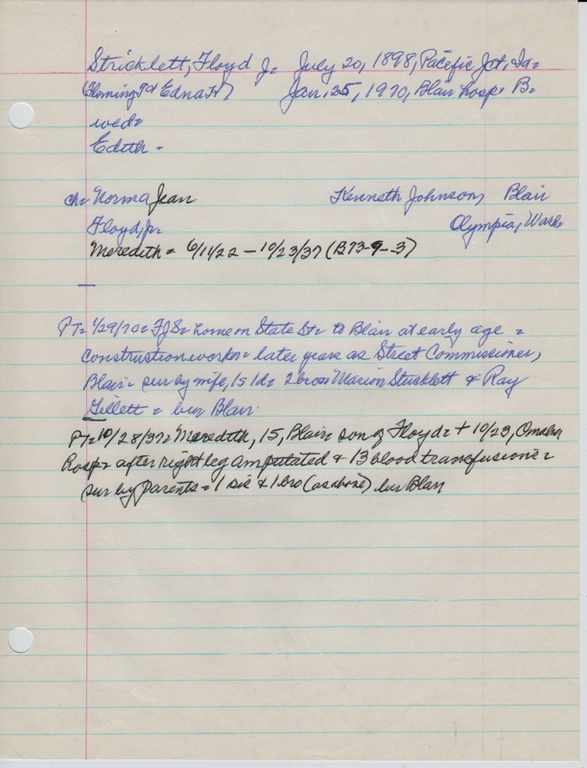 Stricklett, Floyd J= July 20, 1898, Pacific Jct, Ia=
Edna Jan. 25, 1970, Blair hosp= B=
wed=
Edith =
ch= Norma Jean Kenneth Johnson, Blair
Floyd, Jr= Olympia, Wash=
Meredith = 6/11/22 – 10/23/37 (B73-9-3)
—
PT= 1/29/70= FJS= home on State St= to Blair at early age =
construction worker= later years as Street Commissioner,
Blair= sur by wife, 1s 1d= 2 bros Marion Stricklett & Ray
Gillett = bur Blair.
PT= 10/28/37= Meredith, 15, Blair= son of Floyd= + 10/23, Omaha
hosp= after right leg amputated & 13 blood transfusions=
sur by parents= 1 sis & 1 bro (as above) bur Blair